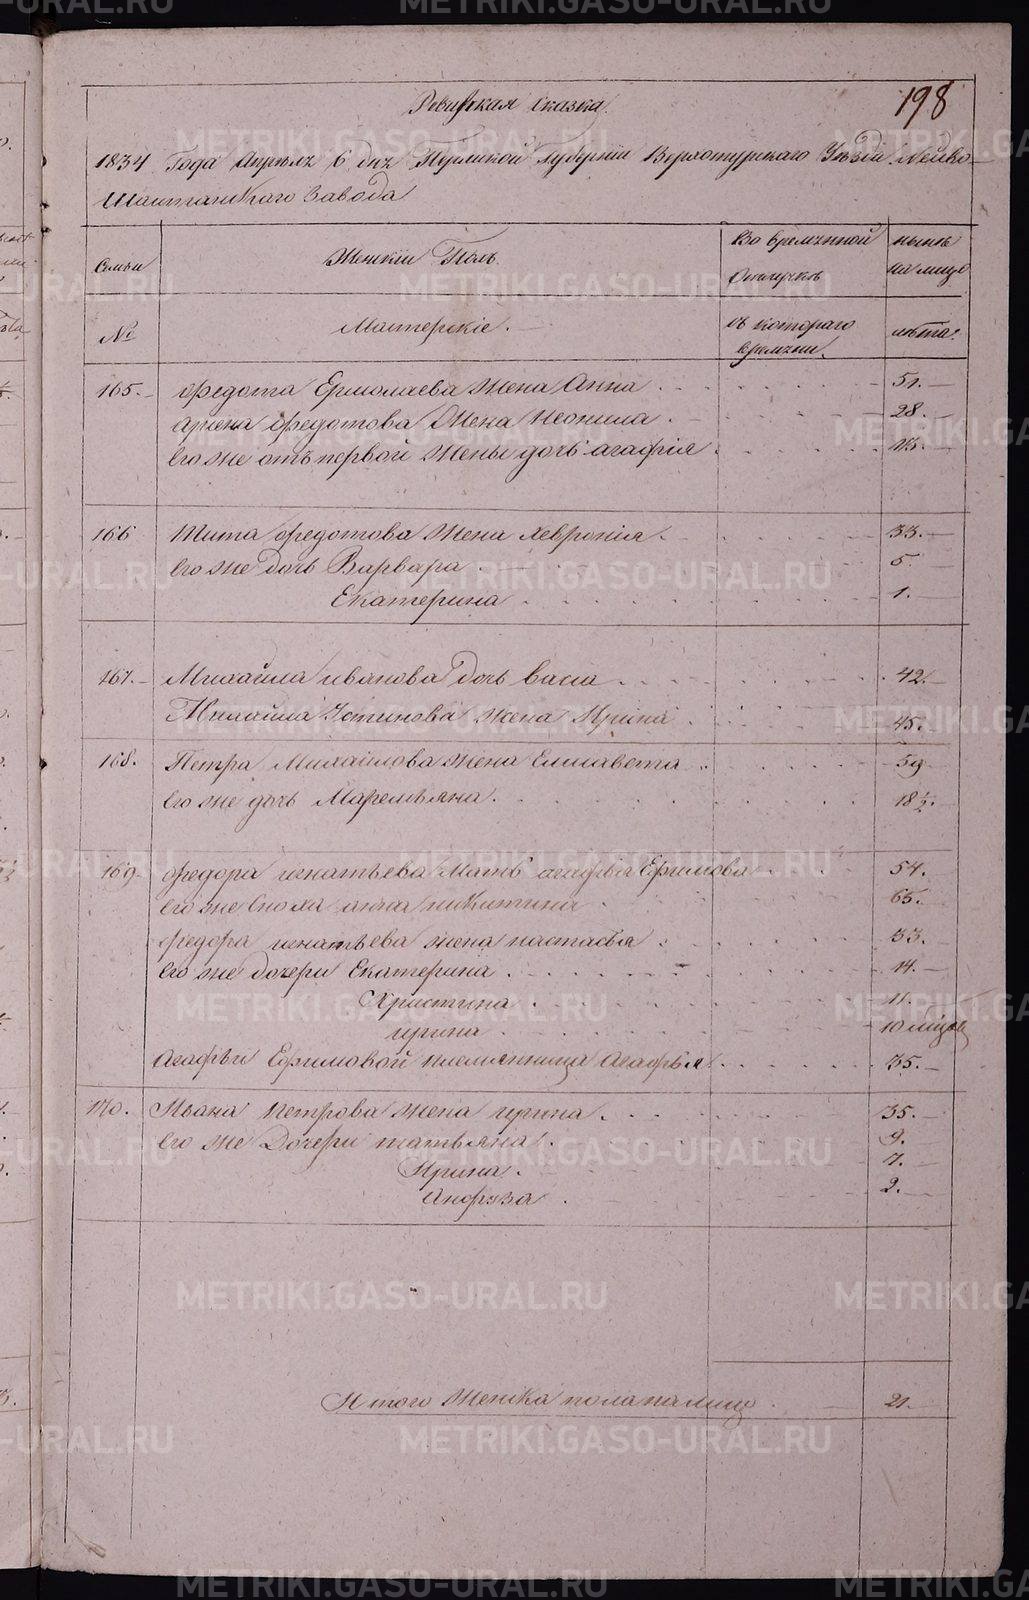 Ревизская сказка.
198
1834 Года Апреля 6 дня Пермской Губернии Верхотурскаго Уезда Нейво-
Шайтанскаго Завода
Семьи
Женский Полъ
Во временной Отлучкѣ
ныне на лицо
№
Мастерскіе.
съ котораго времени.
лѣта.
165. Федота Ермолаева жена Анна 51.
Федотова Жена Неонила 28.
Его же отъ первой жены дочь агафія
166 Тита федотова Жена хеврония 33.
Его же дочь Варвара 5.
Екатерина 1.
167. Михайла иванова дочь васса 42.
Михайла Устинова жена Ирина 45.
168. Петра Михайлова жена Елисавета 59
Его же дочь Маремьяна 18 1/2.
169. федора игнатьева мать агафья Ефимова 54.
Его же Сноха анна никитина 65.
федора игнатьева жена настасья 33.
Его же дочери Екатерина 14.
Христина 11.
ирина 10 мцов
Агафьи Ефимовой племянница Агафья 35.
170. Ивана петрова жена ирина 35.
Его же Дочери татьяна 9.
Ирина 7.
Анфуза 2.
Итого Женска пола налицо 21.
METRIKI.GASO-URAL.RU